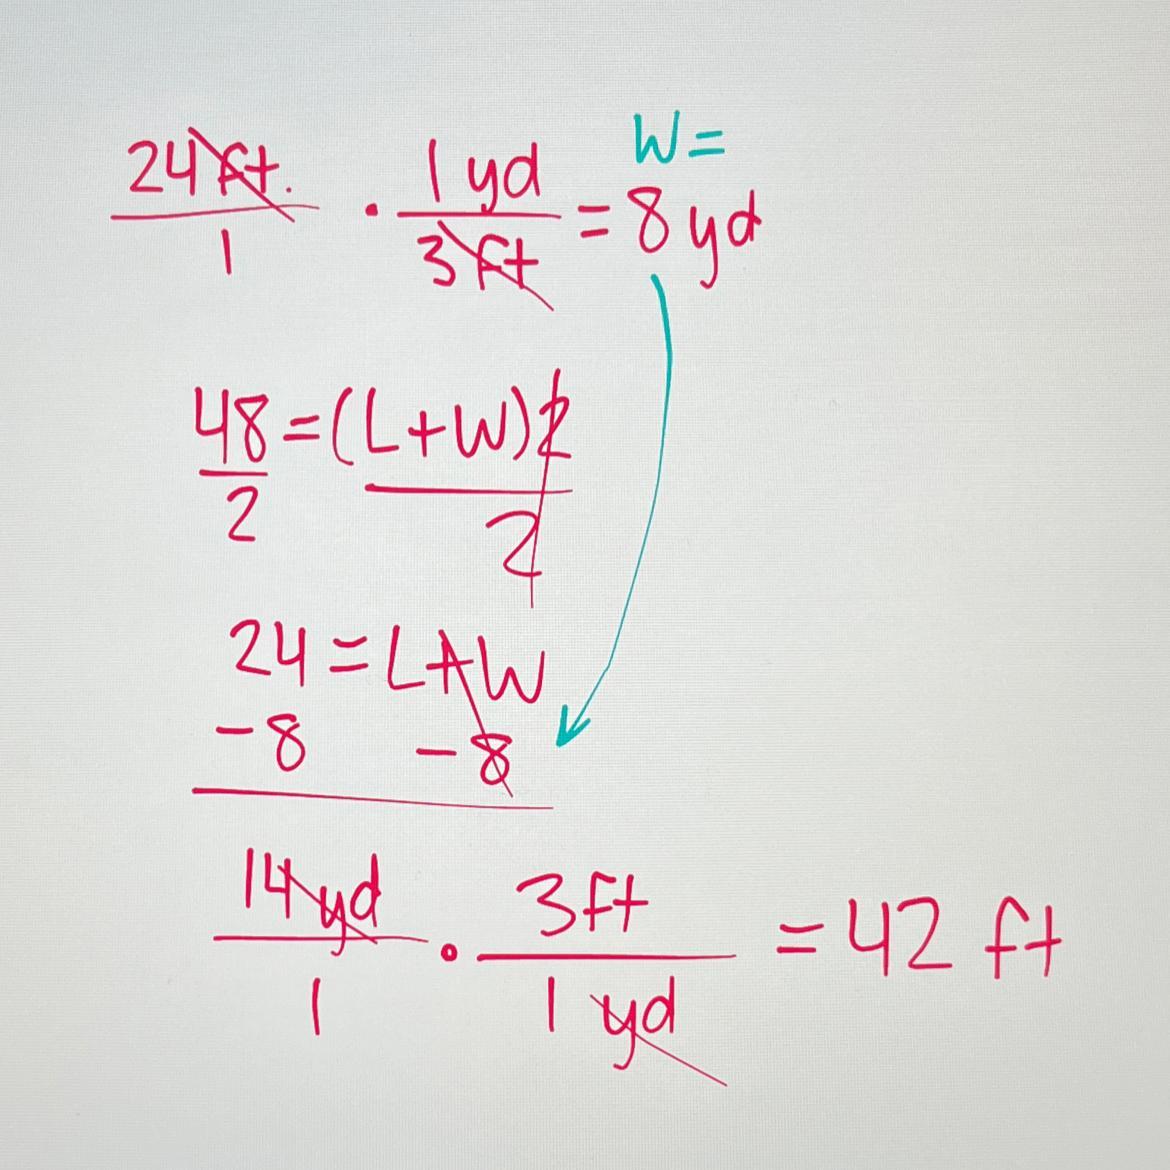 24 ft. / 1 · 1 yd / 3 ft = 8 yd
W =
48 / 2 = (L+W)2 / 2
24 = L+W
-8 -8
14 yd / 1 · 3 ft / 1 yd = 42 ft